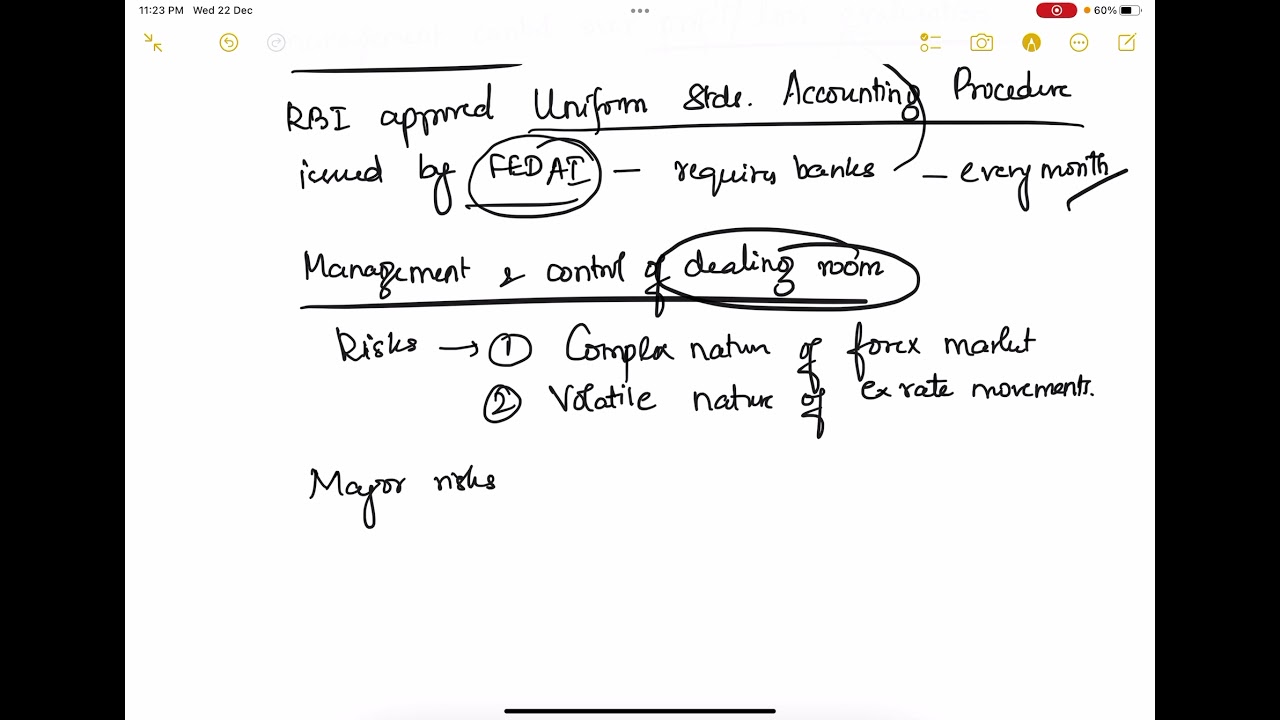 11:23 PM Wed 22 Dec
60%
RBI approved Uniform Stds. Accounting Procedure
issued by FEDAI — requires banks — every month
Management & control of dealing room
Risks → ① Complex nature of forex market
② Volatile nature of ex rate movements.
Major risks